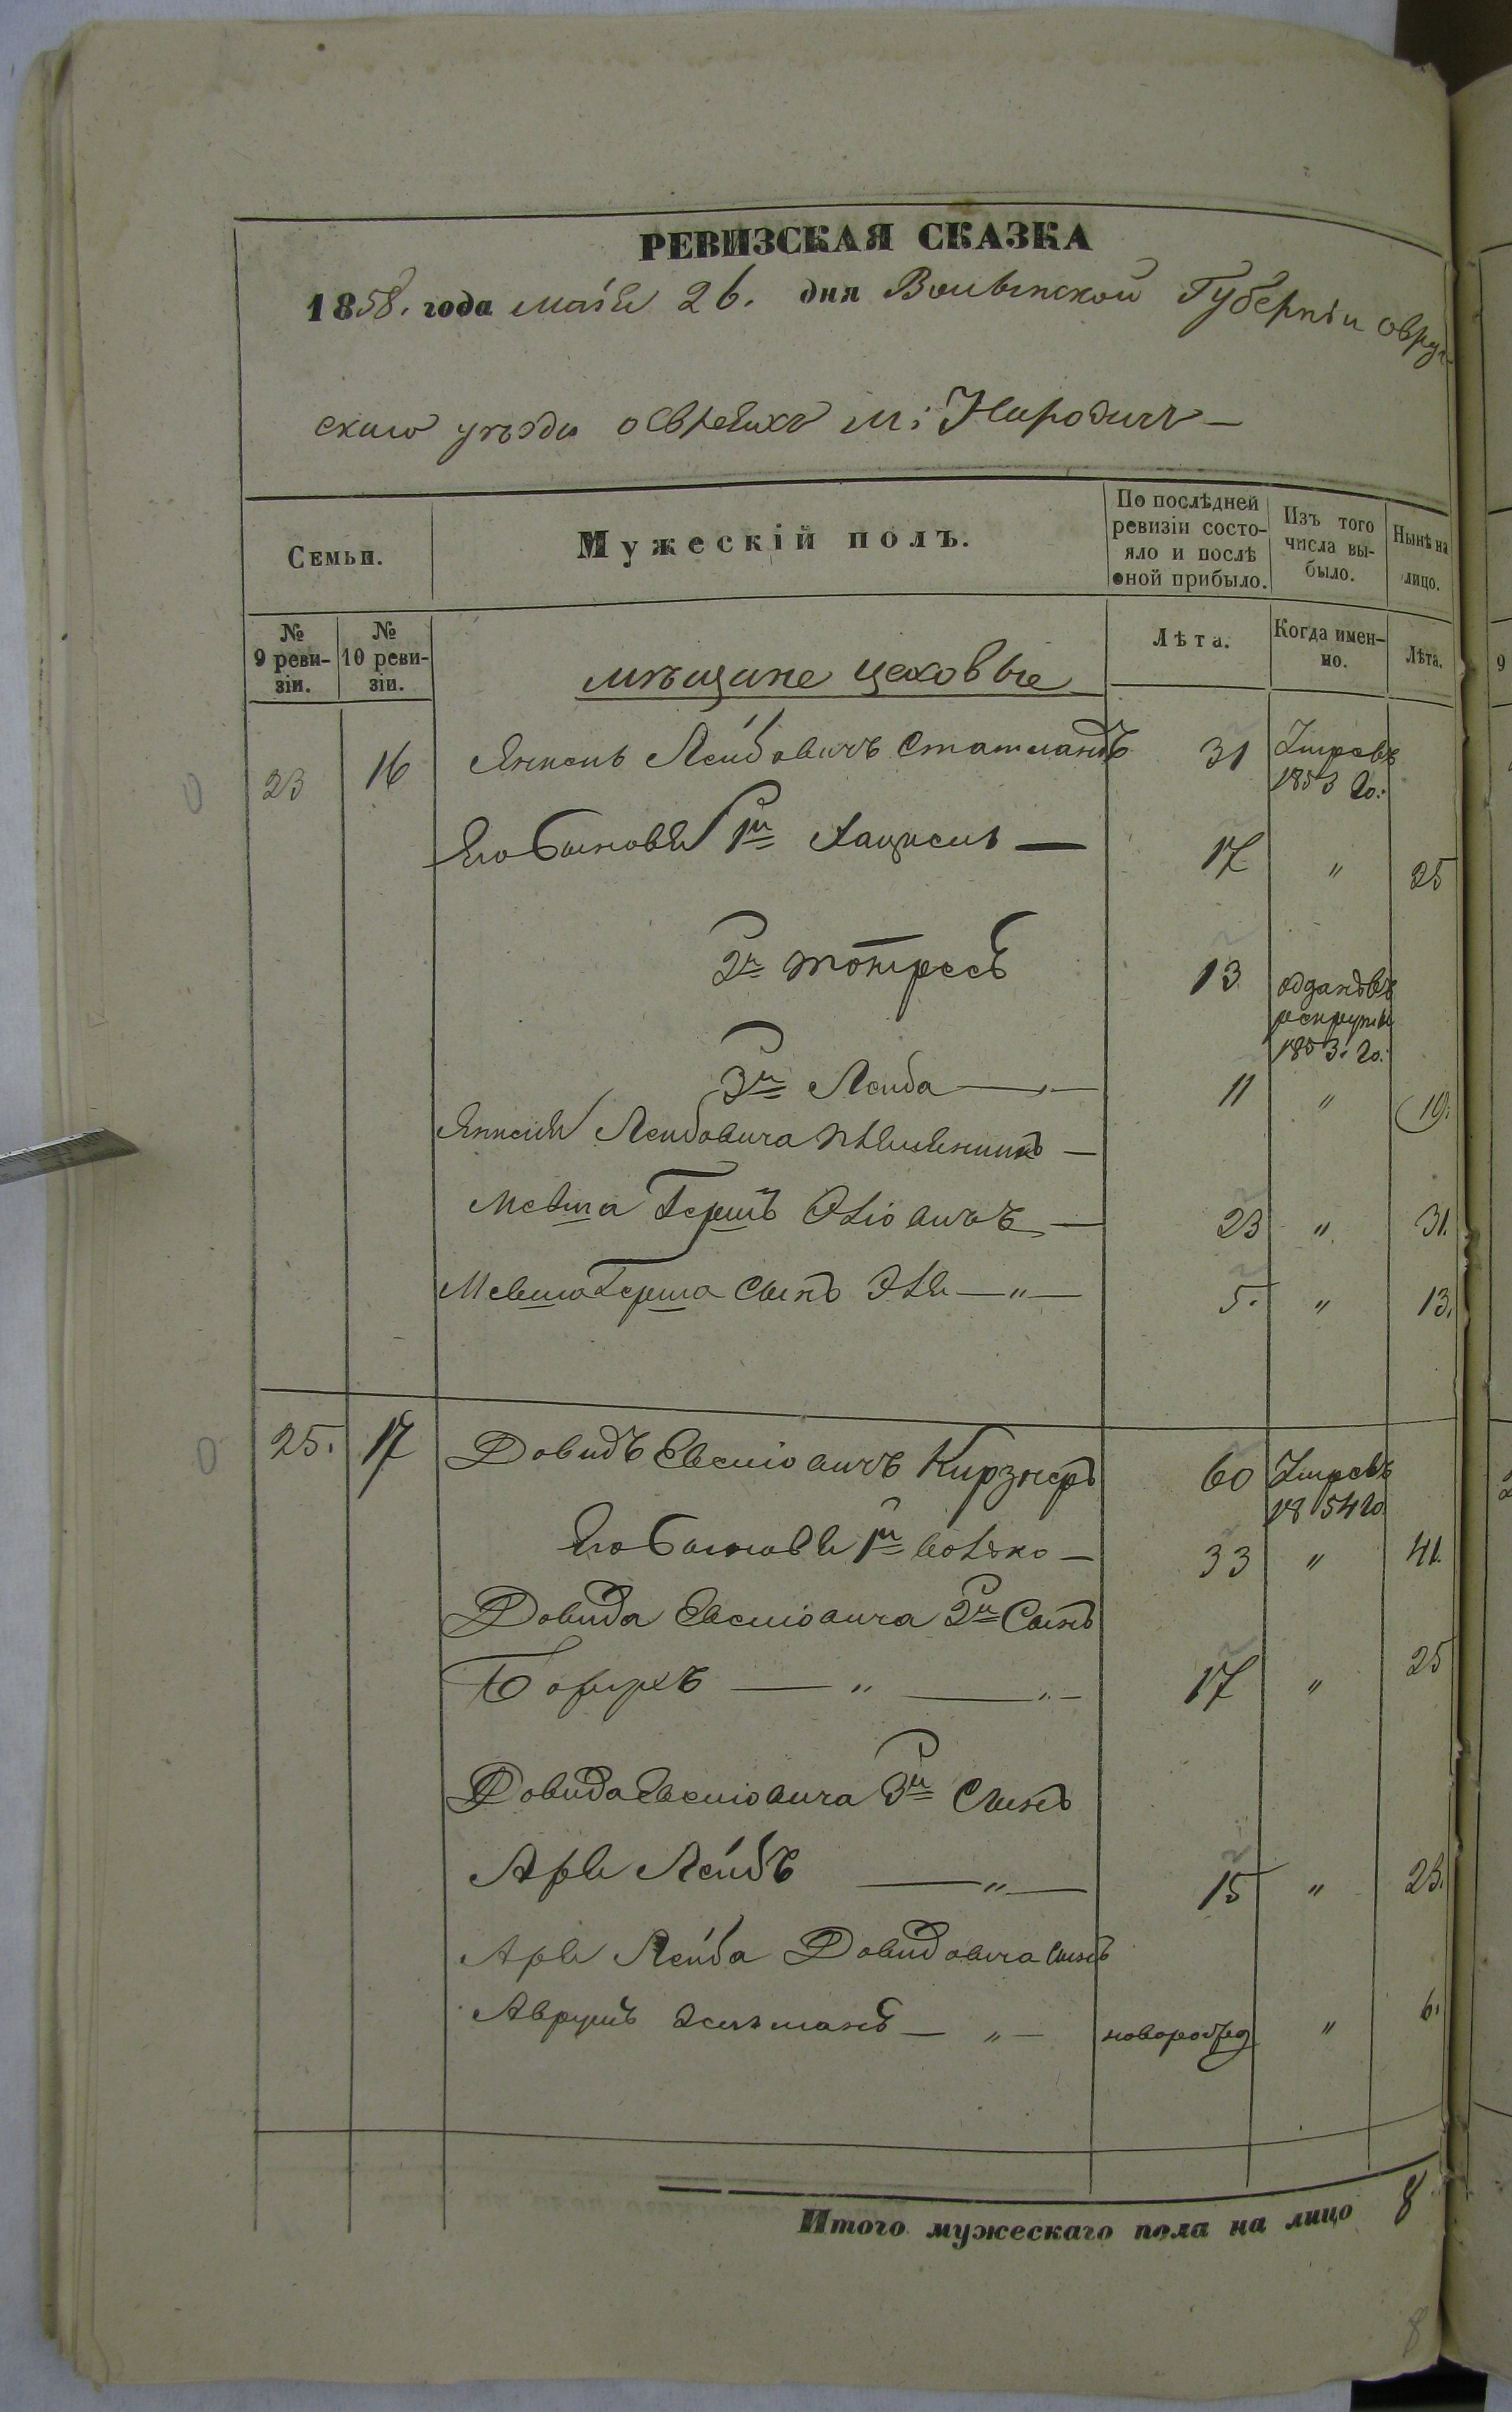 РЕВИЗСКАЯ СКАЗКА
1858. года маія 26. дня Волынской Губерніи овруч
скаго уѣзда о Евреяхъ м: Народичъ —
Семьи.
Мужескій полъ.
По послѣдней ревизіи состояло и послѣ оной прибыло.
Изъ того числа выбыло.
Нынѣ на лицо.
№ 9 ревизіи.
№ 10 ревизіи.
Лѣта.
Когда именно.
Лѣта.
мѣщане цеховые
23 16 Янкель Лейбовичъ 31 Умеръ въ 1853 го:
Его Сыновья 1й — 17 " 25
2й 13 отданъ въ рекруты 1853. го:
3й Лейба — 11 " 19.
Янкеля Лейбовича племянникъ —
Мевша Гершъ — 23 " 31.
Мевша Герша Сынъ — " — 5. " 13.
25. 17 Довидъ Кирзнеръ 60 Умеръ въ 1854 го
Его Сыновья 1й — 33 " 41.
Довида 2й Сынъ
Борухъ — " — 17 " 25
Довида 3й Сынъ
Арья Лейбъ — " — 15 " 23.
Арья Лейба Довидовича Сынъ
Аврумъ Зельманъ — " — новорожд " 6.
Итого мужескаго пола на лицо 8
8